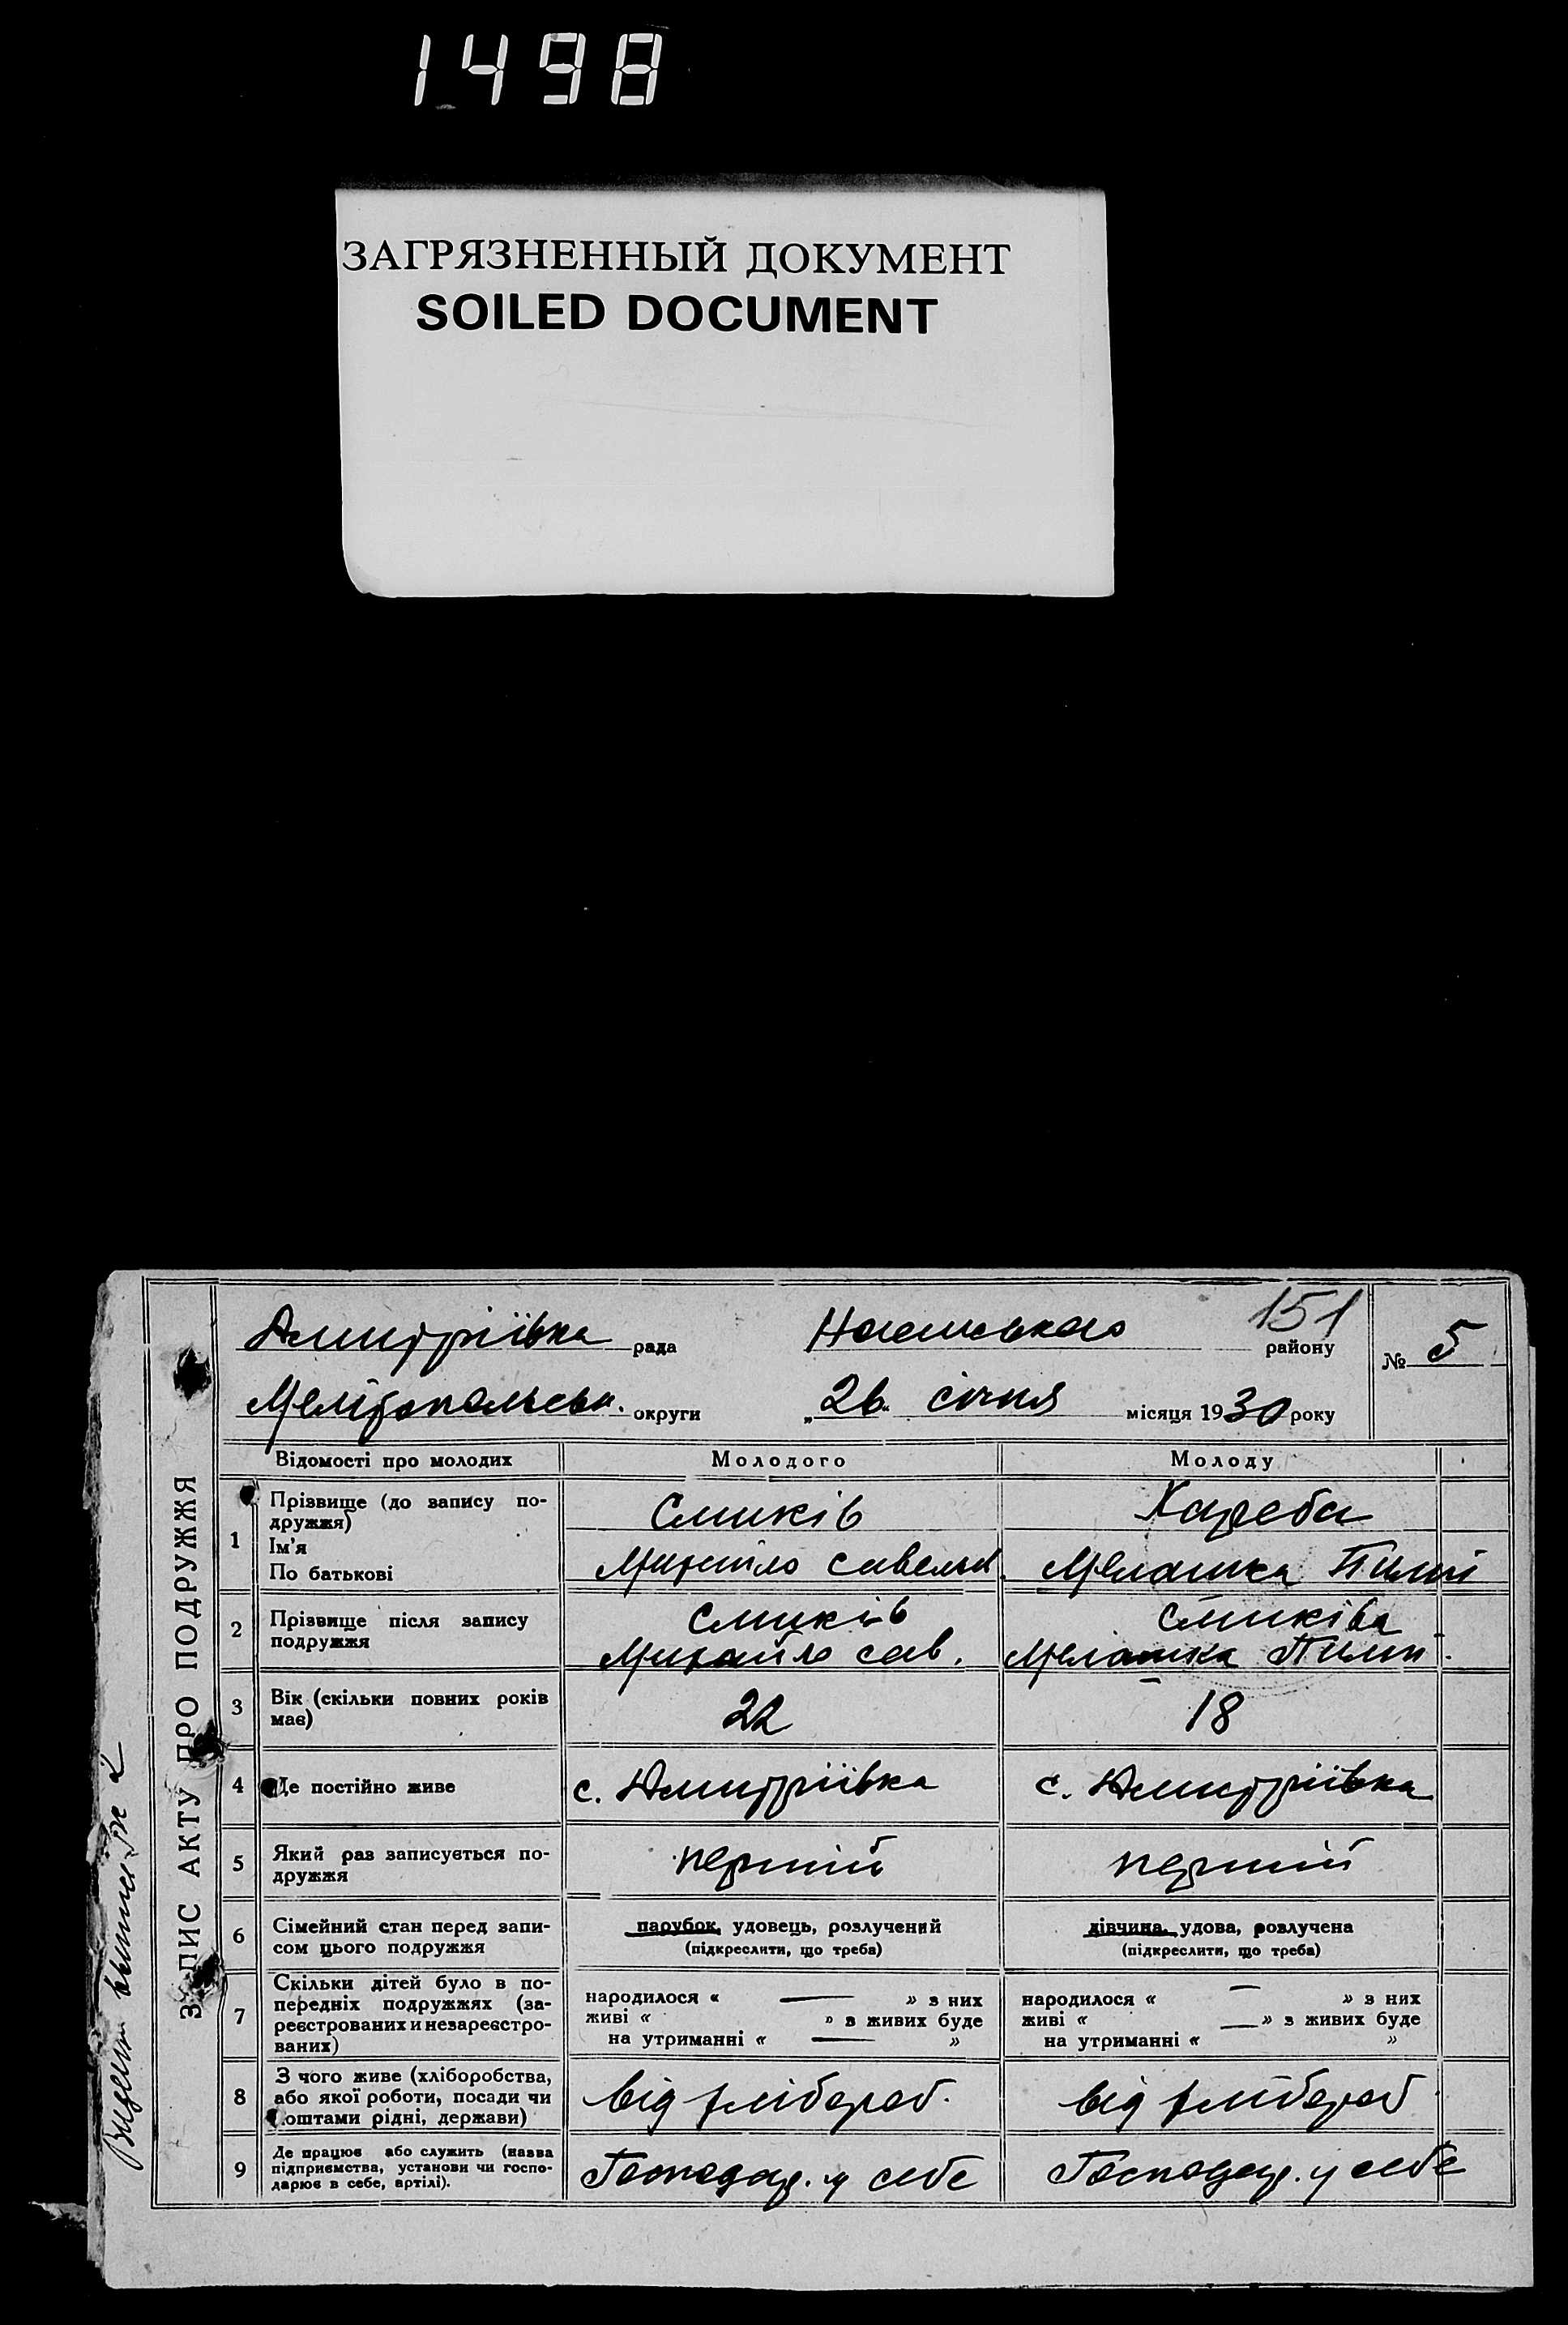 1498
ЗАГРЯЗНЕННЫЙ ДОКУМЕНТ
SOILED DOCUMENT
151
Дмитріівка рада району № 5
Мелітопольськ. округи „26" січня місяця 1930 року
ЗАПИС АКТУ ПРО ПОДРУЖЖЯ
Відомості про молодих Молодого Молоду
1 Прізвище (до запису по-
дружжя)
Ім'я
По батькові
Смиків Хареба
Михайло Савельй. Мелашка Пилип
2 Прізвище після запису
подружжя
Смиків Смиківа
Михайло Сав. Мелашка Пилип.
3 Вік (скільки повних років
має)
22 18
4 Де постійно живе с. Дмитріівка с. Дмитріівка
5 Який раз записується по-
дружжя
перший перший
6 Сімейний стан перед запи-
сом цього подружжя
парубок, удовець, розлучений дівчина, удова, розлучена
(підкреслити, що треба) (підкреслити, що треба)
7 Скільки дітей було в по-
передніх подружжях (за-
реєстрованих и незареєстро-
ваних)
народилося « — » з них народилося « — » з них
живі « » з живих буде живі « — » з живих буде
на утриманні « — » на утриманні « »
8 З чого живе (хліборобства,
або якої роботи, посади чи
коштами рідні, держави)
від хлібороб. від хлібороб
9 Де працює або служить (назва
підприємства, установи чи госпо-
дарює в себе, артілі).
Господар. у себе Господар. у себе